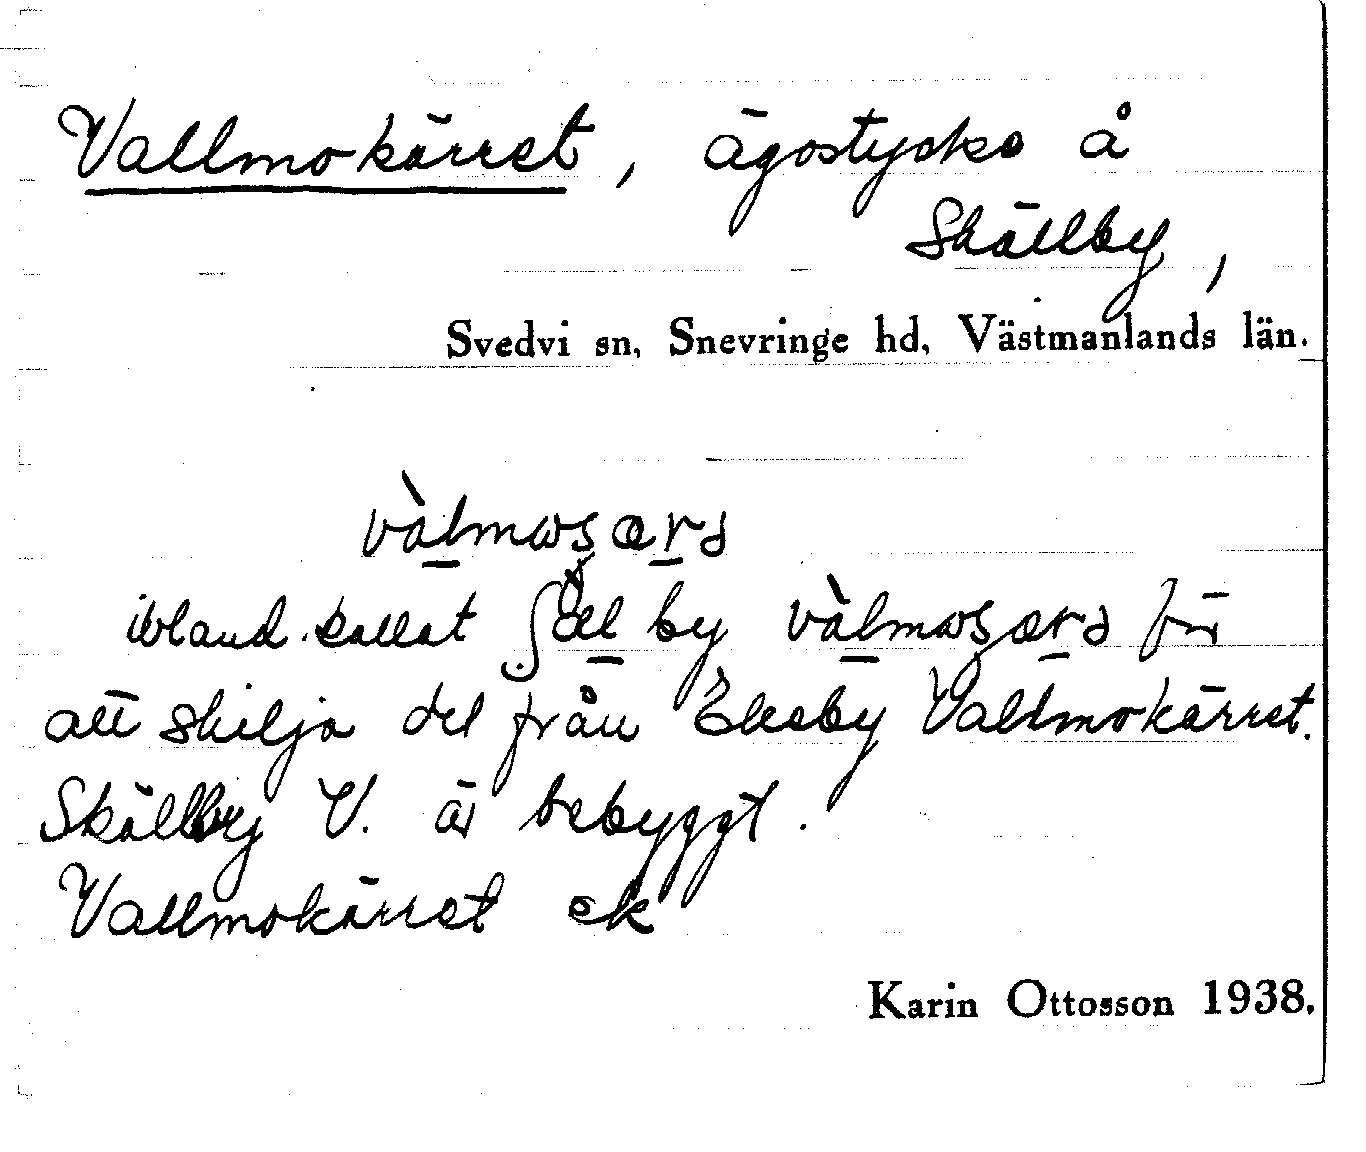 Vallmokärret, ägostycke å
Skällby,
Svedvi sn, Snevringe hd, Västmanlands län.
ibland kallat by för
att skilja det från Ekeby Vallmokärret.
Skällby V. är bebyggt.
Vallmokärret ek
Karin Ottosson 1938.